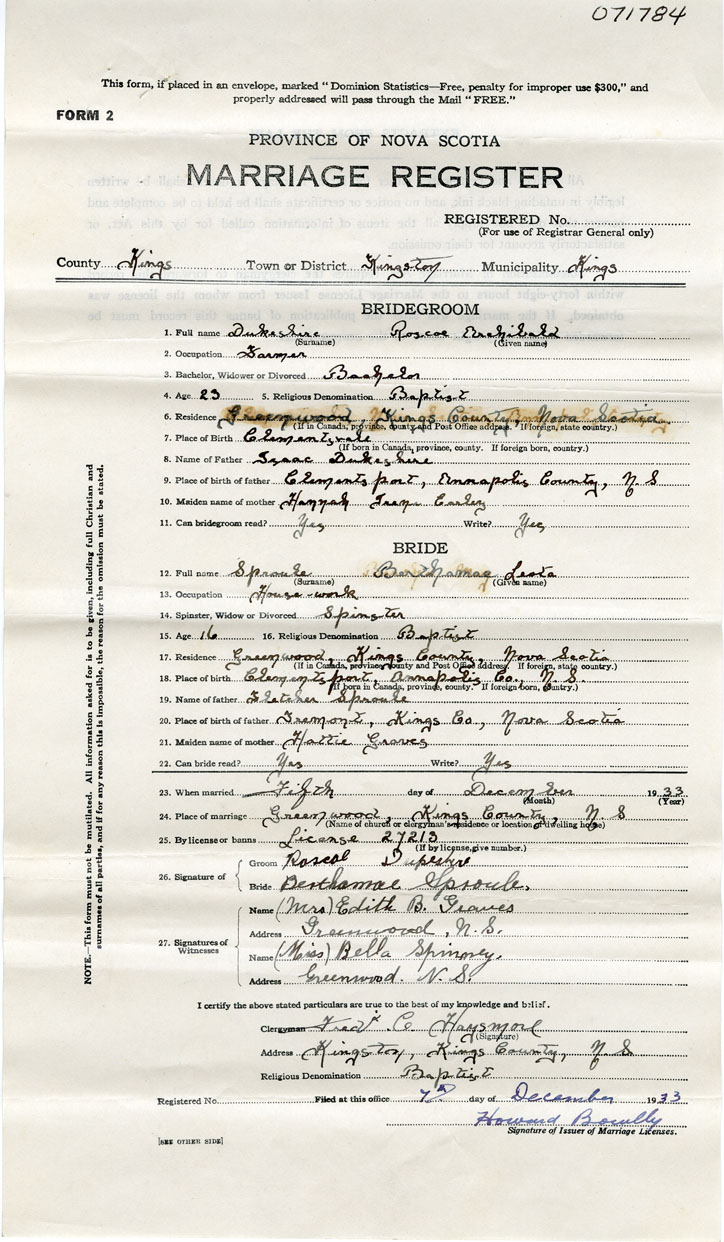 071784
This form, if placed in an envelope, marked “Dominion Statistics—Free, penalty for improper use $300,” and
properly addressed will pass through the Mail “FREE.”
FORM 2
PROVINCE OF NOVA SCOTIA
MARRIAGE REGISTER
REGISTERED No.
(For use of Registrar General only)
County Kings Town or District Kingston Municipality Kings
BRIDEGROOM
1. Full name Dukeshire Roscoe Archibald
(Surname) (Given name)
2. Occupation Farmer
3. Bachelor, Widower or Divorced Bachelor
4. Age 23 5. Religious Denomination Baptist
6. Residence Greenwood, Kings County, Nova Scotia
(If in Canada, province, county and Post Office address. If foreign, state country.)
7. Place of Birth Clementsvale
(If born in Canada, province, county. If foreign born, country.)
8. Name of Father Isaac Dukeshire
9. Place of birth of father Clementsport, Annapolis County, N S
10. Maiden name of mother Hannah Irene
11. Can bridegroom read? Yes Write? Yes
BRIDE
12. Full name Sproule Berthamae Leota
(Surname) (Given name)
13. Occupation House-work
14. Spinster, Widow or Divorced Spinster
15. Age 16 16. Religious Denomination Baptist
17. Residence Greenwood, Kings County, Nova Scotia
(If in Canada, province, county and Post Office address. If foreign, state country.)
18. Place of birth Clementsport, Annapolis Co., N. S.
(If born in Canada, province, county. If foreign born, country.)
19. Name of father Fletcher Sproule
20. Place of birth of father Tremont, Kings Co., Nova Scotia
21. Maiden name of mother Hattie Graves
22. Can bride read? Yes Write? Yes
23. When married Fifth day of December 1933
(Month) (Year)
24. Place of marriage Greenwood, Kings County, N S
(Name of church or clergyman's residence or location of dwelling house)
25. By license or banns License 27213
(If by license, give number.)
26. Signature of
Groom Roscoe
Bride Berthamae Sproule.
27. Signatures of Witnesses
Name (Mrs) Edith B. Graves
Address Greenwood, N.S.
Name (Miss) Bella Spinney.
Address Greenwood. N. S.
I certify the above stated particulars are true to the best of my knowledge and belief.
Clergyman Fred C Haysmore
(Signature)
Address Kingston, Kings County, N S
Religious Denomination Baptist
Registered No. Filed at this office 7th day of December 1933
Howard
Signature of Issuer of Marriage Licenses.
[SEE OTHER SIDE]
NOTE.—This form must not be mutilated. All information asked for is to be given, including full Christian and
surnames of all parties, and if for any reason this is impossible, the reason for the omission must be stated.